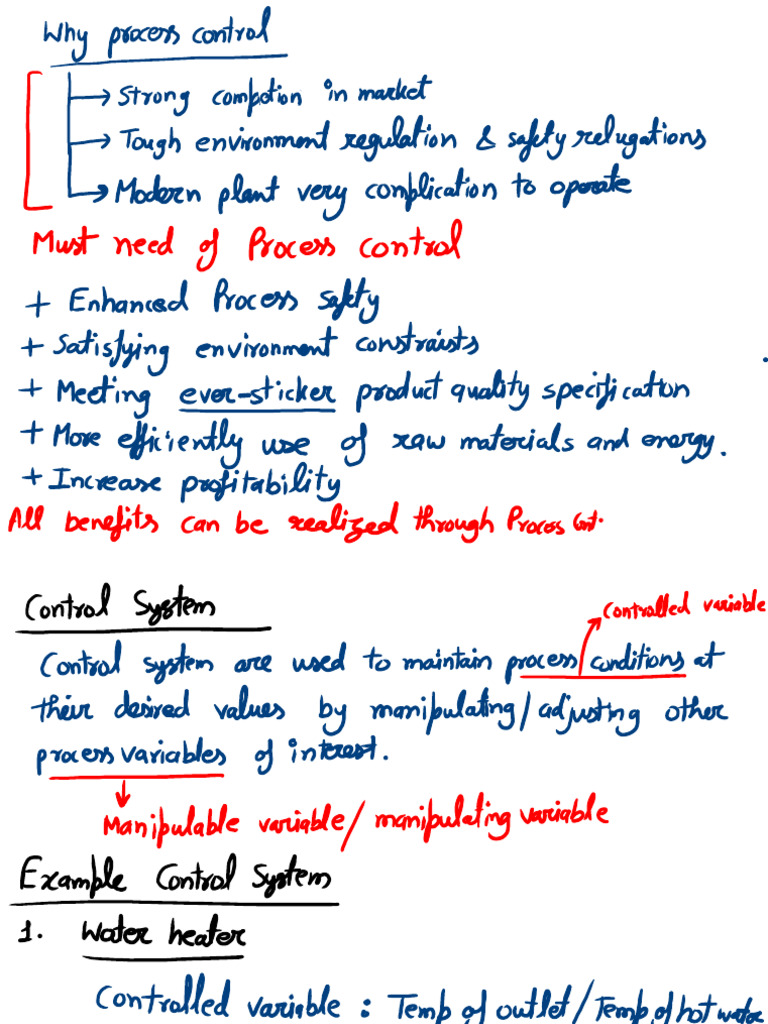 Why process control
Strong compotion in market
Tough environment regulation & safety relugations
Modern plant very complication to operate
Must need of Process control
+ Enhanced Process safety
+ Satisfying environment constraists
+ Meeting ever-sticker product quality specification
+ More efficiently use of raw materials and energy.
+ Increase profitability
All benefits can be realized through Process Cont.
Control System
Controlled variable
Control system are used to maintain process conditions at
their desired values by manipulating/adjusting other
process variables of interest.
Manipulable variable/manipulating variable
Example Control System
1. Water heater
Controlled variable : Temp of outlet/Temp. of hot water